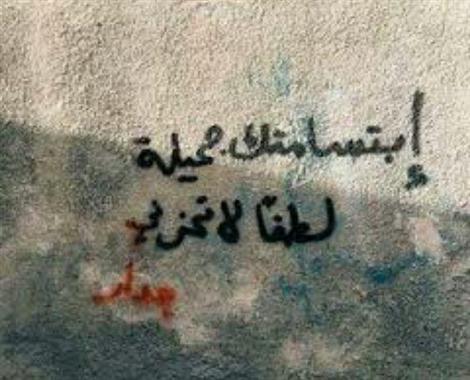 إبتسامتك جميلة
لطفًا لا تحزني
جدار